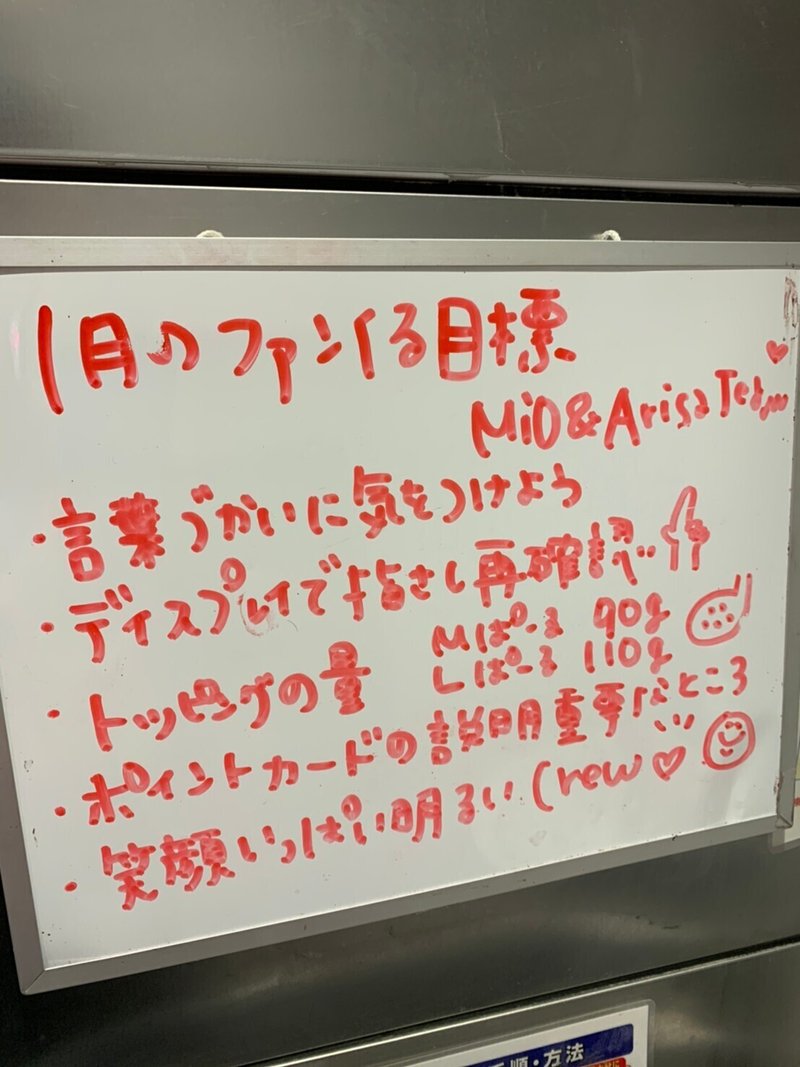 1月のファンくる目標
MiO&Arisa Team
・言葉づかいに気をつけよう
・ディスプレイで指さし再確認
・トッピングの量 Mぱーる 90g
Lぱーる 110g
・ポイントカードの説明重要なところ
・笑顔いっぱい明るいCrew
順・方法